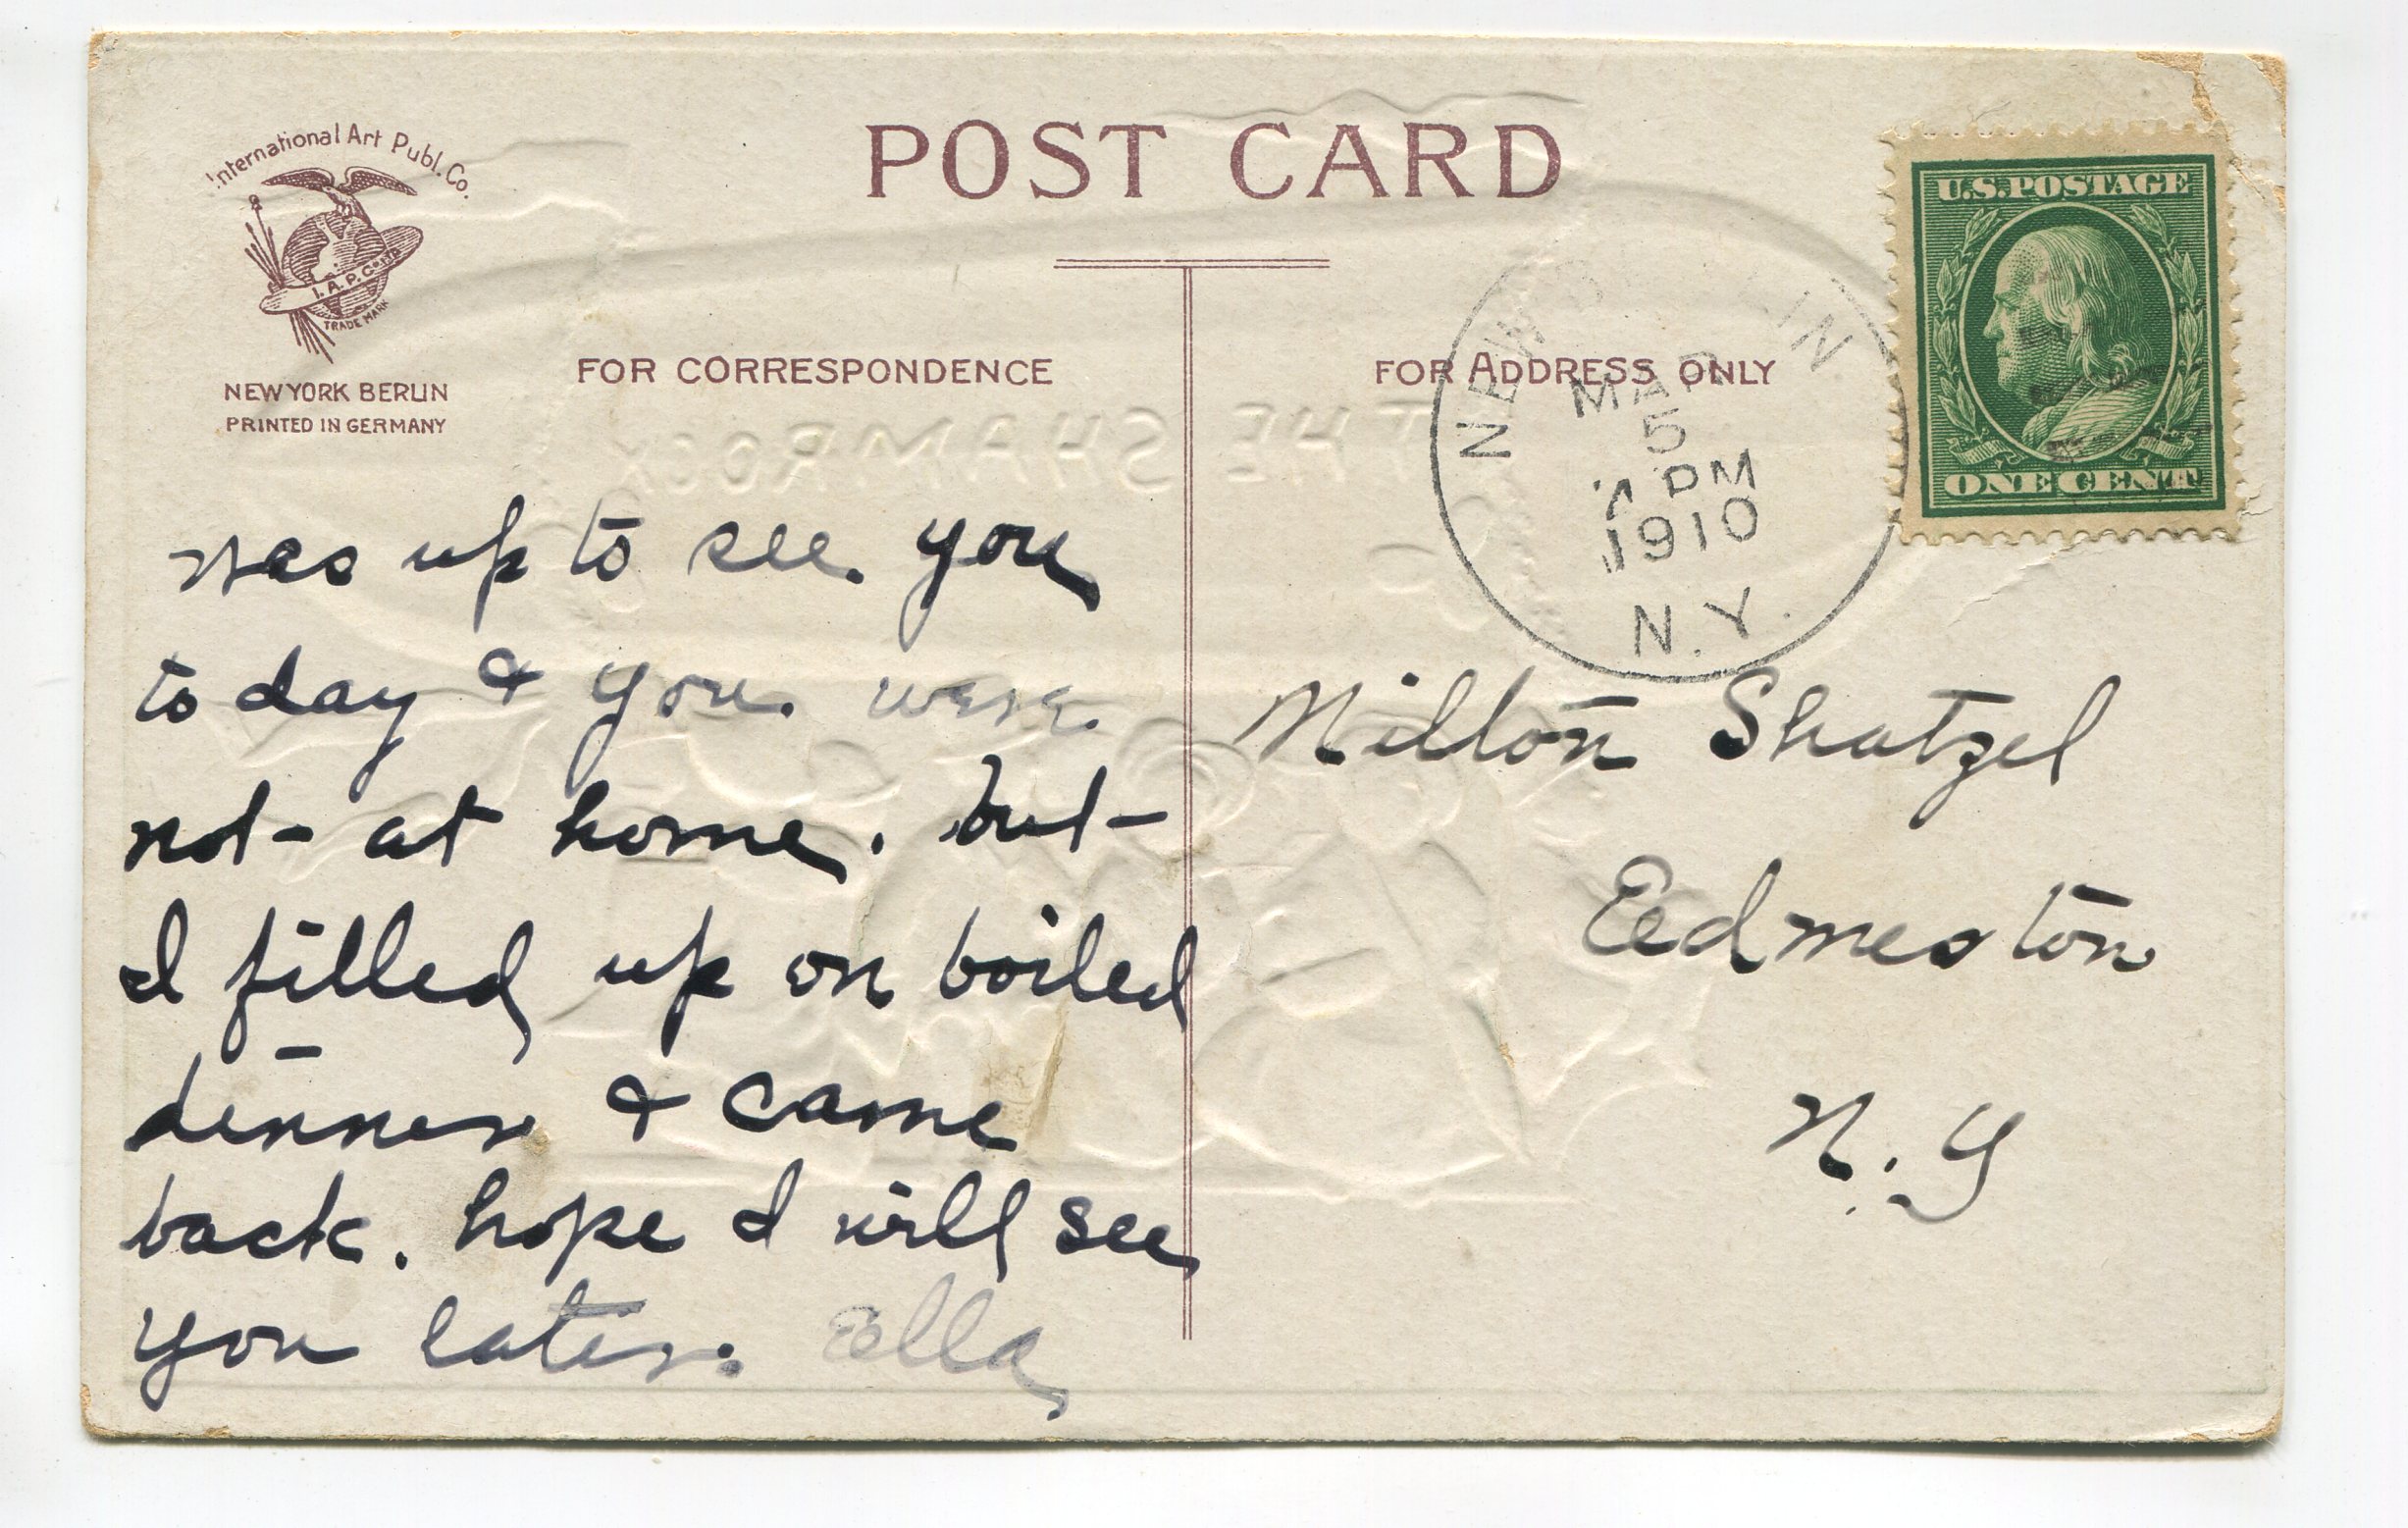 International Art Publ. Co.
I. A. P. Co.
TRADE MARK
NEW YORK BERLIN
PRINTED IN GERMANY
POST CARD
FOR CORRESPONDENCE
FOR ADDRESS ONLY
THE SHAMROCK
NEW B LIN
MAR
5
7 PM
1910
N.Y.
U.S. POSTAGE
ONE CENT
was up to see you
to day & you were
not at home. but
I filled up on boiled
dinner & came
back. hope I will see
you later. Ella
Milton Shatzel
Edmeston
N.Y